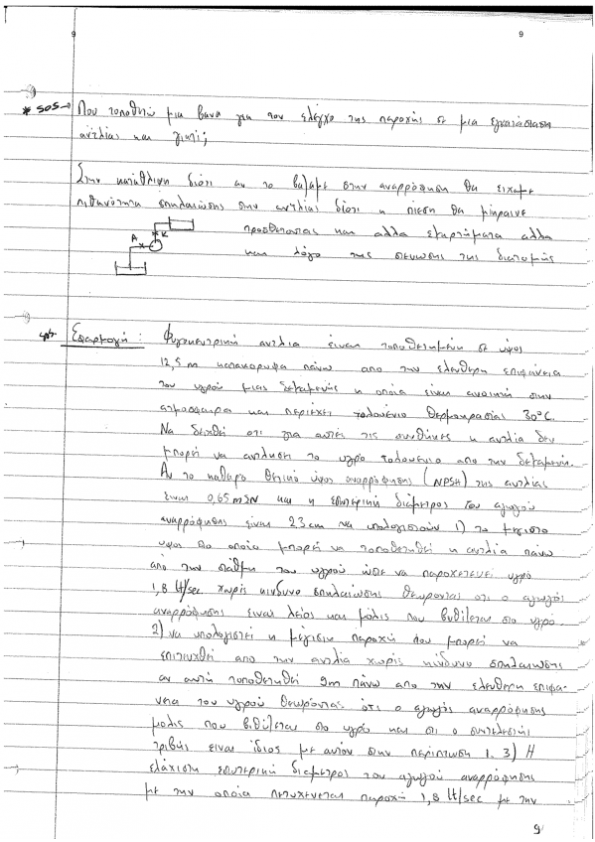 9 9
* SOS → Που τοποθετώ μια βανα για τον έλεγχο της παροχής σε μια εγκατάσταση
αντλίας και γιατί;
Στην κατάθλιψη διότι αν το βαλαμε στην αναρρόφηση θα ειχαμε
πιθανότητα σπηλαίωσης στην αντλία διότι η πίεση θα μίκραινε
προσθέτοντας και αλλα εξαρτήματα αλλα
και λόγο της στένωσης της διατομής
A K
Εφαρμογή: Φυγοκεντρική αντλια είναι τοποθετημένη σε ύψος
12,5 m κατακορυφα πάνω απο την ελευθερη επιφάνεια
του υγρού μιας δεξαμενής η οποία είναι ανοικτή στην
ατμοσφαιρα και περιέχει τολουένιο θερμοκρασίας 30°C.
Να δειχθεί οτι για αυτές τις συνθήκες η αντλία δεν
μπορεί να αντλήσει το υγρό τολουενιο απο την δεξαμενή.
Αν το καθαρο θετικό ύψος αναρρόφησης (NPSH) της αντλίας
ειναι 0,65 και η εσωτερική διάμετρος του αγωγού
αναρρόφησης είναι 2,3 cm να υπολογιστούν 1) το μεγιστο
υψος στο οποίο μπορεί να τοποθετηθεί η αντλία πάνω
από την σταθμη του υγρού ώστε να παροχετευει υγρό
1,8 lt/sec χωρίς κίνδυνο σπηλαιωσης θεωροντας οτι ο αγωγός
αναρρόφησης ειναι λείος και μόλις που βυθίζεται στο υγρό.
2) να υπολογιστεί η μέγιστη παροχή που μπορεί να
επιτευχθεί απο την αντλία χωρίς κίνδυνο σπηλαιωσης
αν αυτή τοποθετηθεί 9m πάνω απο την ελευθερη επιφα-
νεια του υγρού θεωρόντας οτι ο αγωγός αναρρόφησης
μολις που βιθίζεται στο υγρό και οτι ο συντελεστής
τριβής είναι ίδιος με αυτον στην περίπτωση 1. 3) Η
ελάχιστη εσωτερική διαμετρος του αγωγού αναρρόφησης
με την οποία πετυχενεται παροχή 1,8 lt/sec με την
9